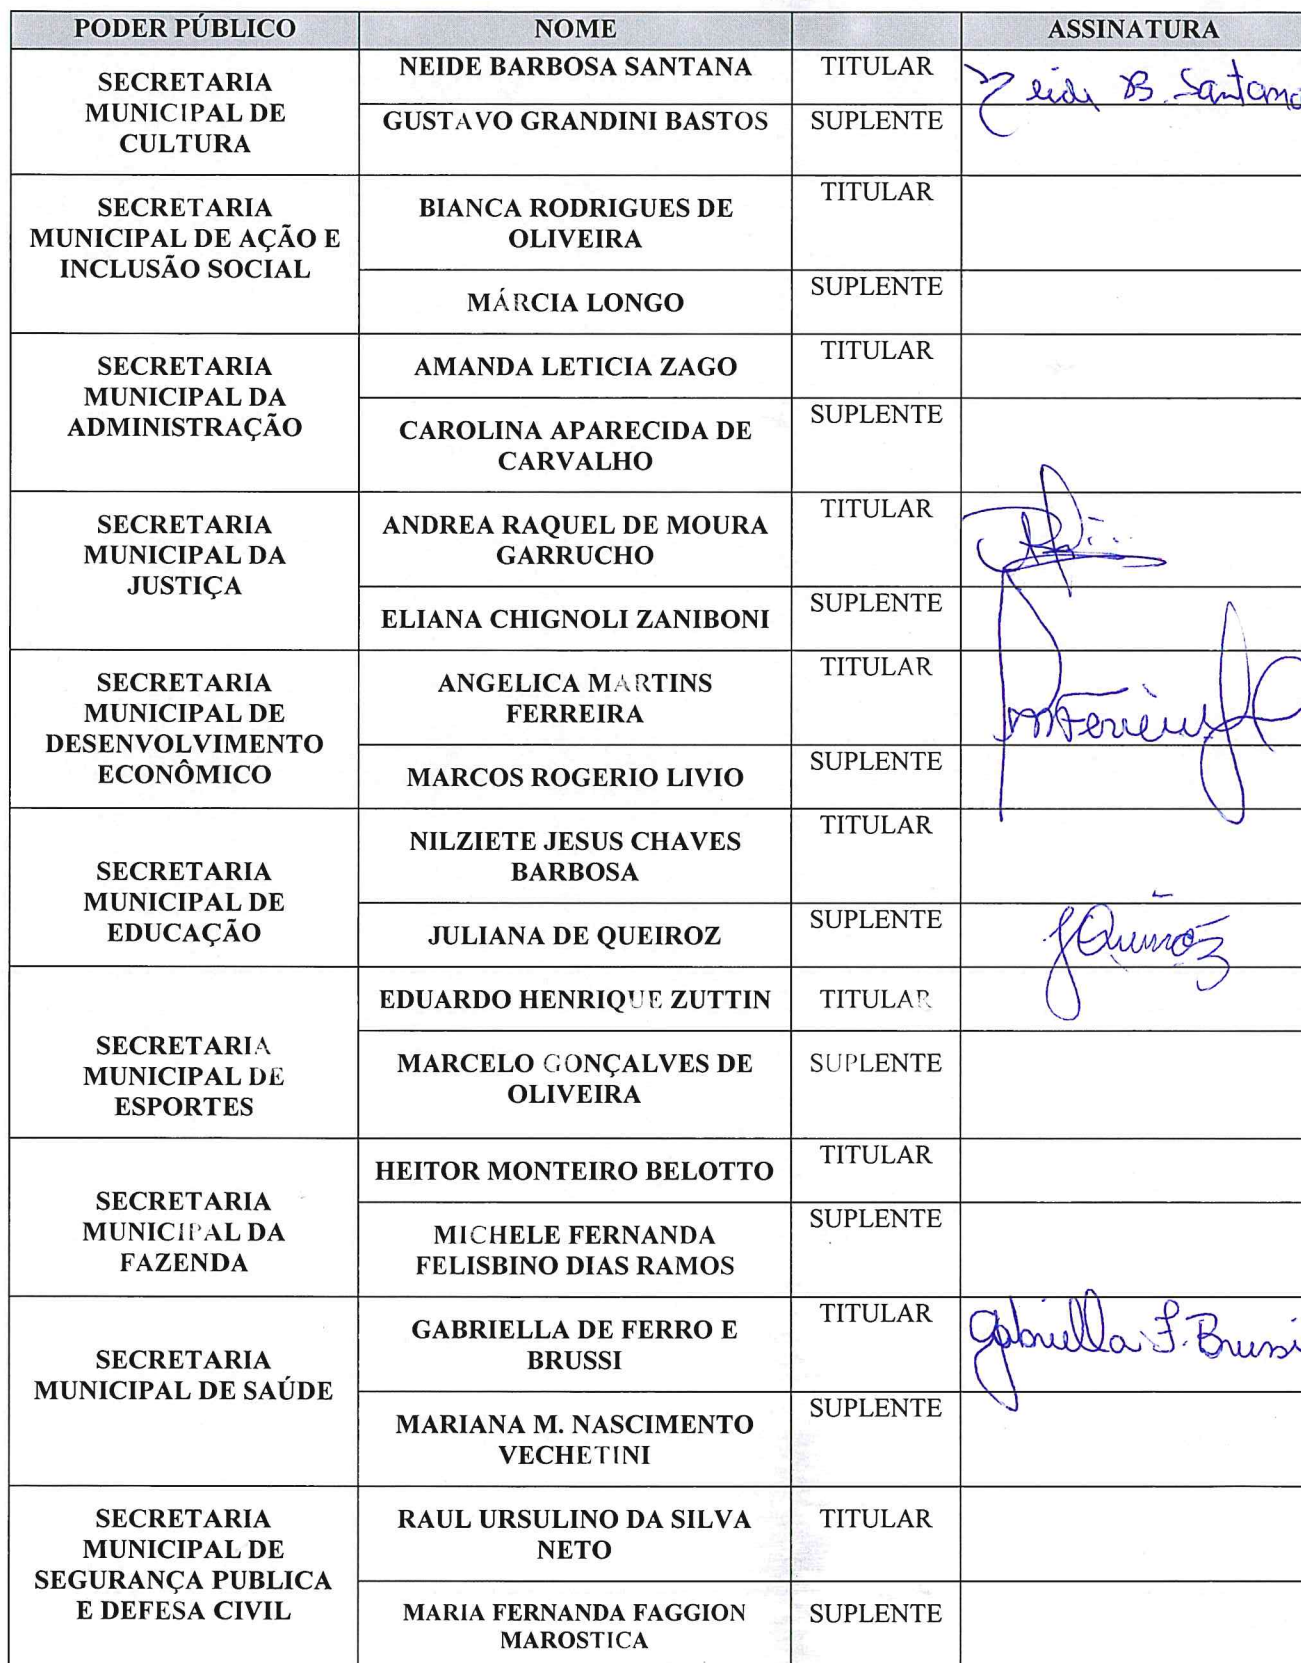 PODER PÚBLICO NOME ASSINATURA
SECRETARIA
MUNICIPAL DE
CULTURA
NEIDE BARBOSA SANTANA TITULAR Neide B. Santana
GUSTAVO GRANDINI BASTOS SUPLENTE
SECRETARIA
MUNICIPAL DE AÇÃO E
INCLUSÃO SOCIAL
BIANCA RODRIGUES DE
OLIVEIRA
TITULAR
MÁRCIA LONGO SUPLENTE
SECRETARIA
MUNICIPAL DA
ADMINISTRAÇÃO
AMANDA LETICIA ZAGO TITULAR
CAROLINA APARECIDA DE
CARVALHO
SUPLENTE
SECRETARIA
MUNICIPAL DA
JUSTIÇA
ANDREA RAQUEL DE MOURA
GARRUCHO
TITULAR
ELIANA CHIGNOLI ZANIBONI SUPLENTE
SECRETARIA
MUNICIPAL DE
DESENVOLVIMENTO
ECONÔMICO
ANGELICA MARTINS
FERREIRA
TITULAR
MARCOS ROGERIO LIVIO SUPLENTE
SECRETARIA
MUNICIPAL DE
EDUCAÇÃO
NILZIETE JESUS CHAVES
BARBOSA
TITULAR
JULIANA DE QUEIROZ SUPLENTE JQueiroz
SECRETARIA
MUNICIPAL DE
ESPORTES
EDUARDO HENRIQUE ZUTTIN TITULAR
MARCELO GONÇALVES DE
OLIVEIRA
SUPLENTE
SECRETARIA
MUNICIPAL DA
FAZENDA
HEITOR MONTEIRO BELOTTO TITULAR
MICHELE FERNANDA
FELISBINO DIAS RAMOS
SUPLENTE
SECRETARIA
MUNICIPAL DE SAÚDE
GABRIELLA DE FERRO E
BRUSSI
TITULAR Gabriella F. Brussi
MARIANA M. NASCIMENTO
VECHETINI
SUPLENTE
SECRETARIA
MUNICIPAL DE
SEGURANÇA PUBLICA
E DEFESA CIVIL
RAUL URSULINO DA SILVA
NETO
TITULAR
MARIA FERNANDA FAGGION
MAROSTICA
SUPLENTE